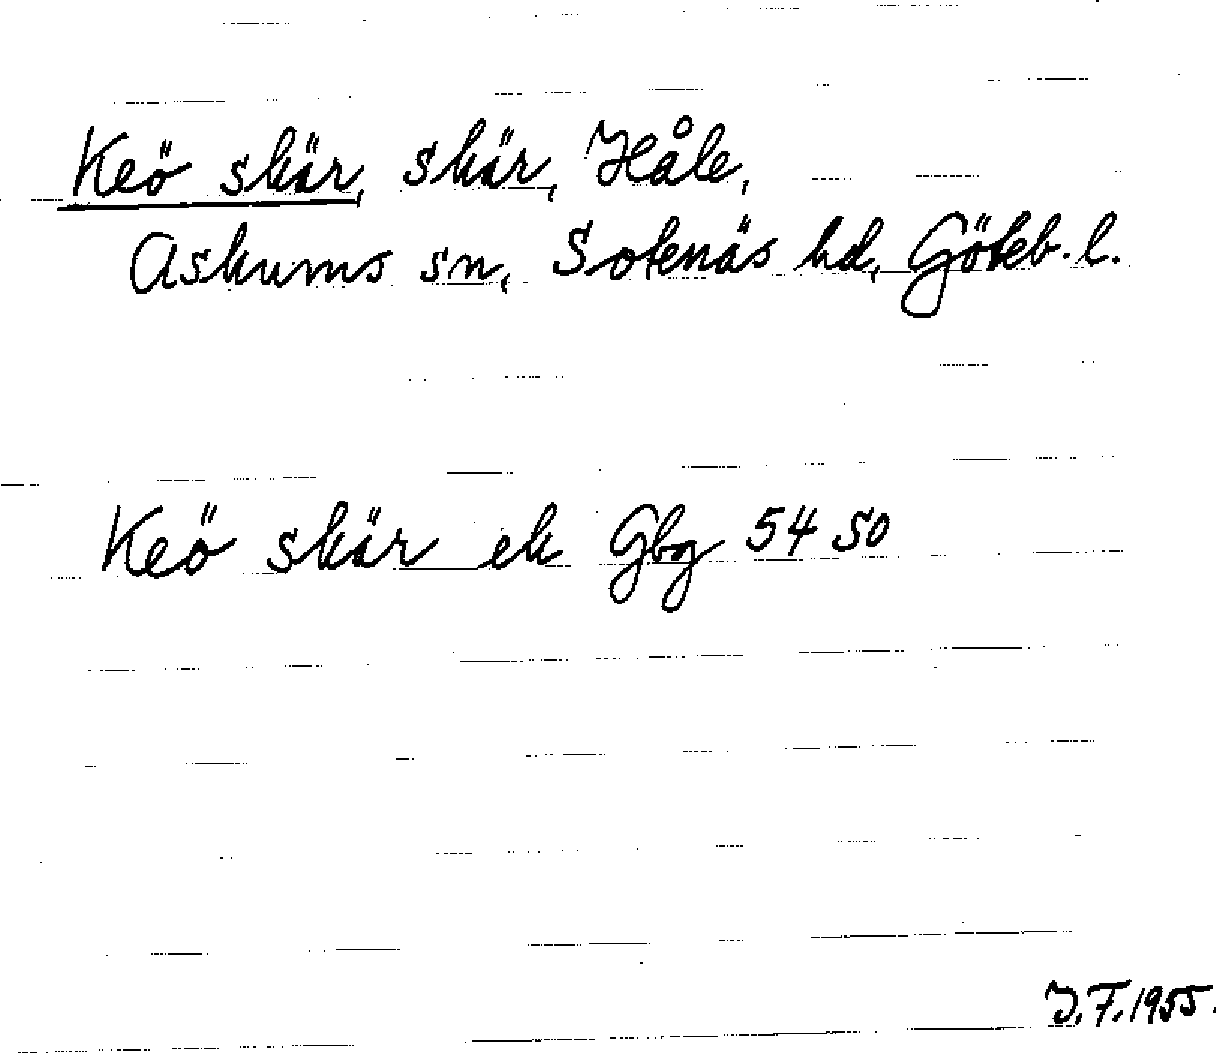 Keö skär, skär, Håle,
Askums sn, Sotenäs hd, Göteb. l.
Keö skär ek Gbg 54 SO
J.F. 1955.